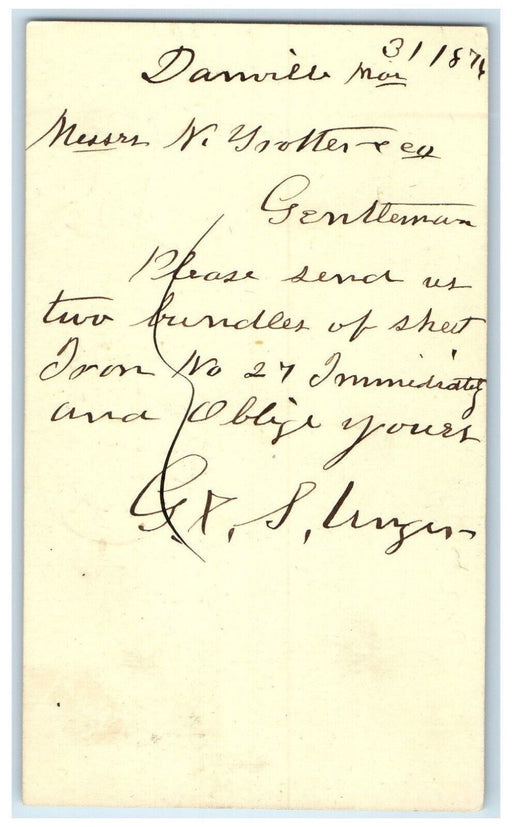 Danville Mar 31 1874
Messrs N. Trotter & co
Gentleman
Please send us
two bundles of sheet
Iron No 27 Immediately
and Oblige yours
G. & S. Unger